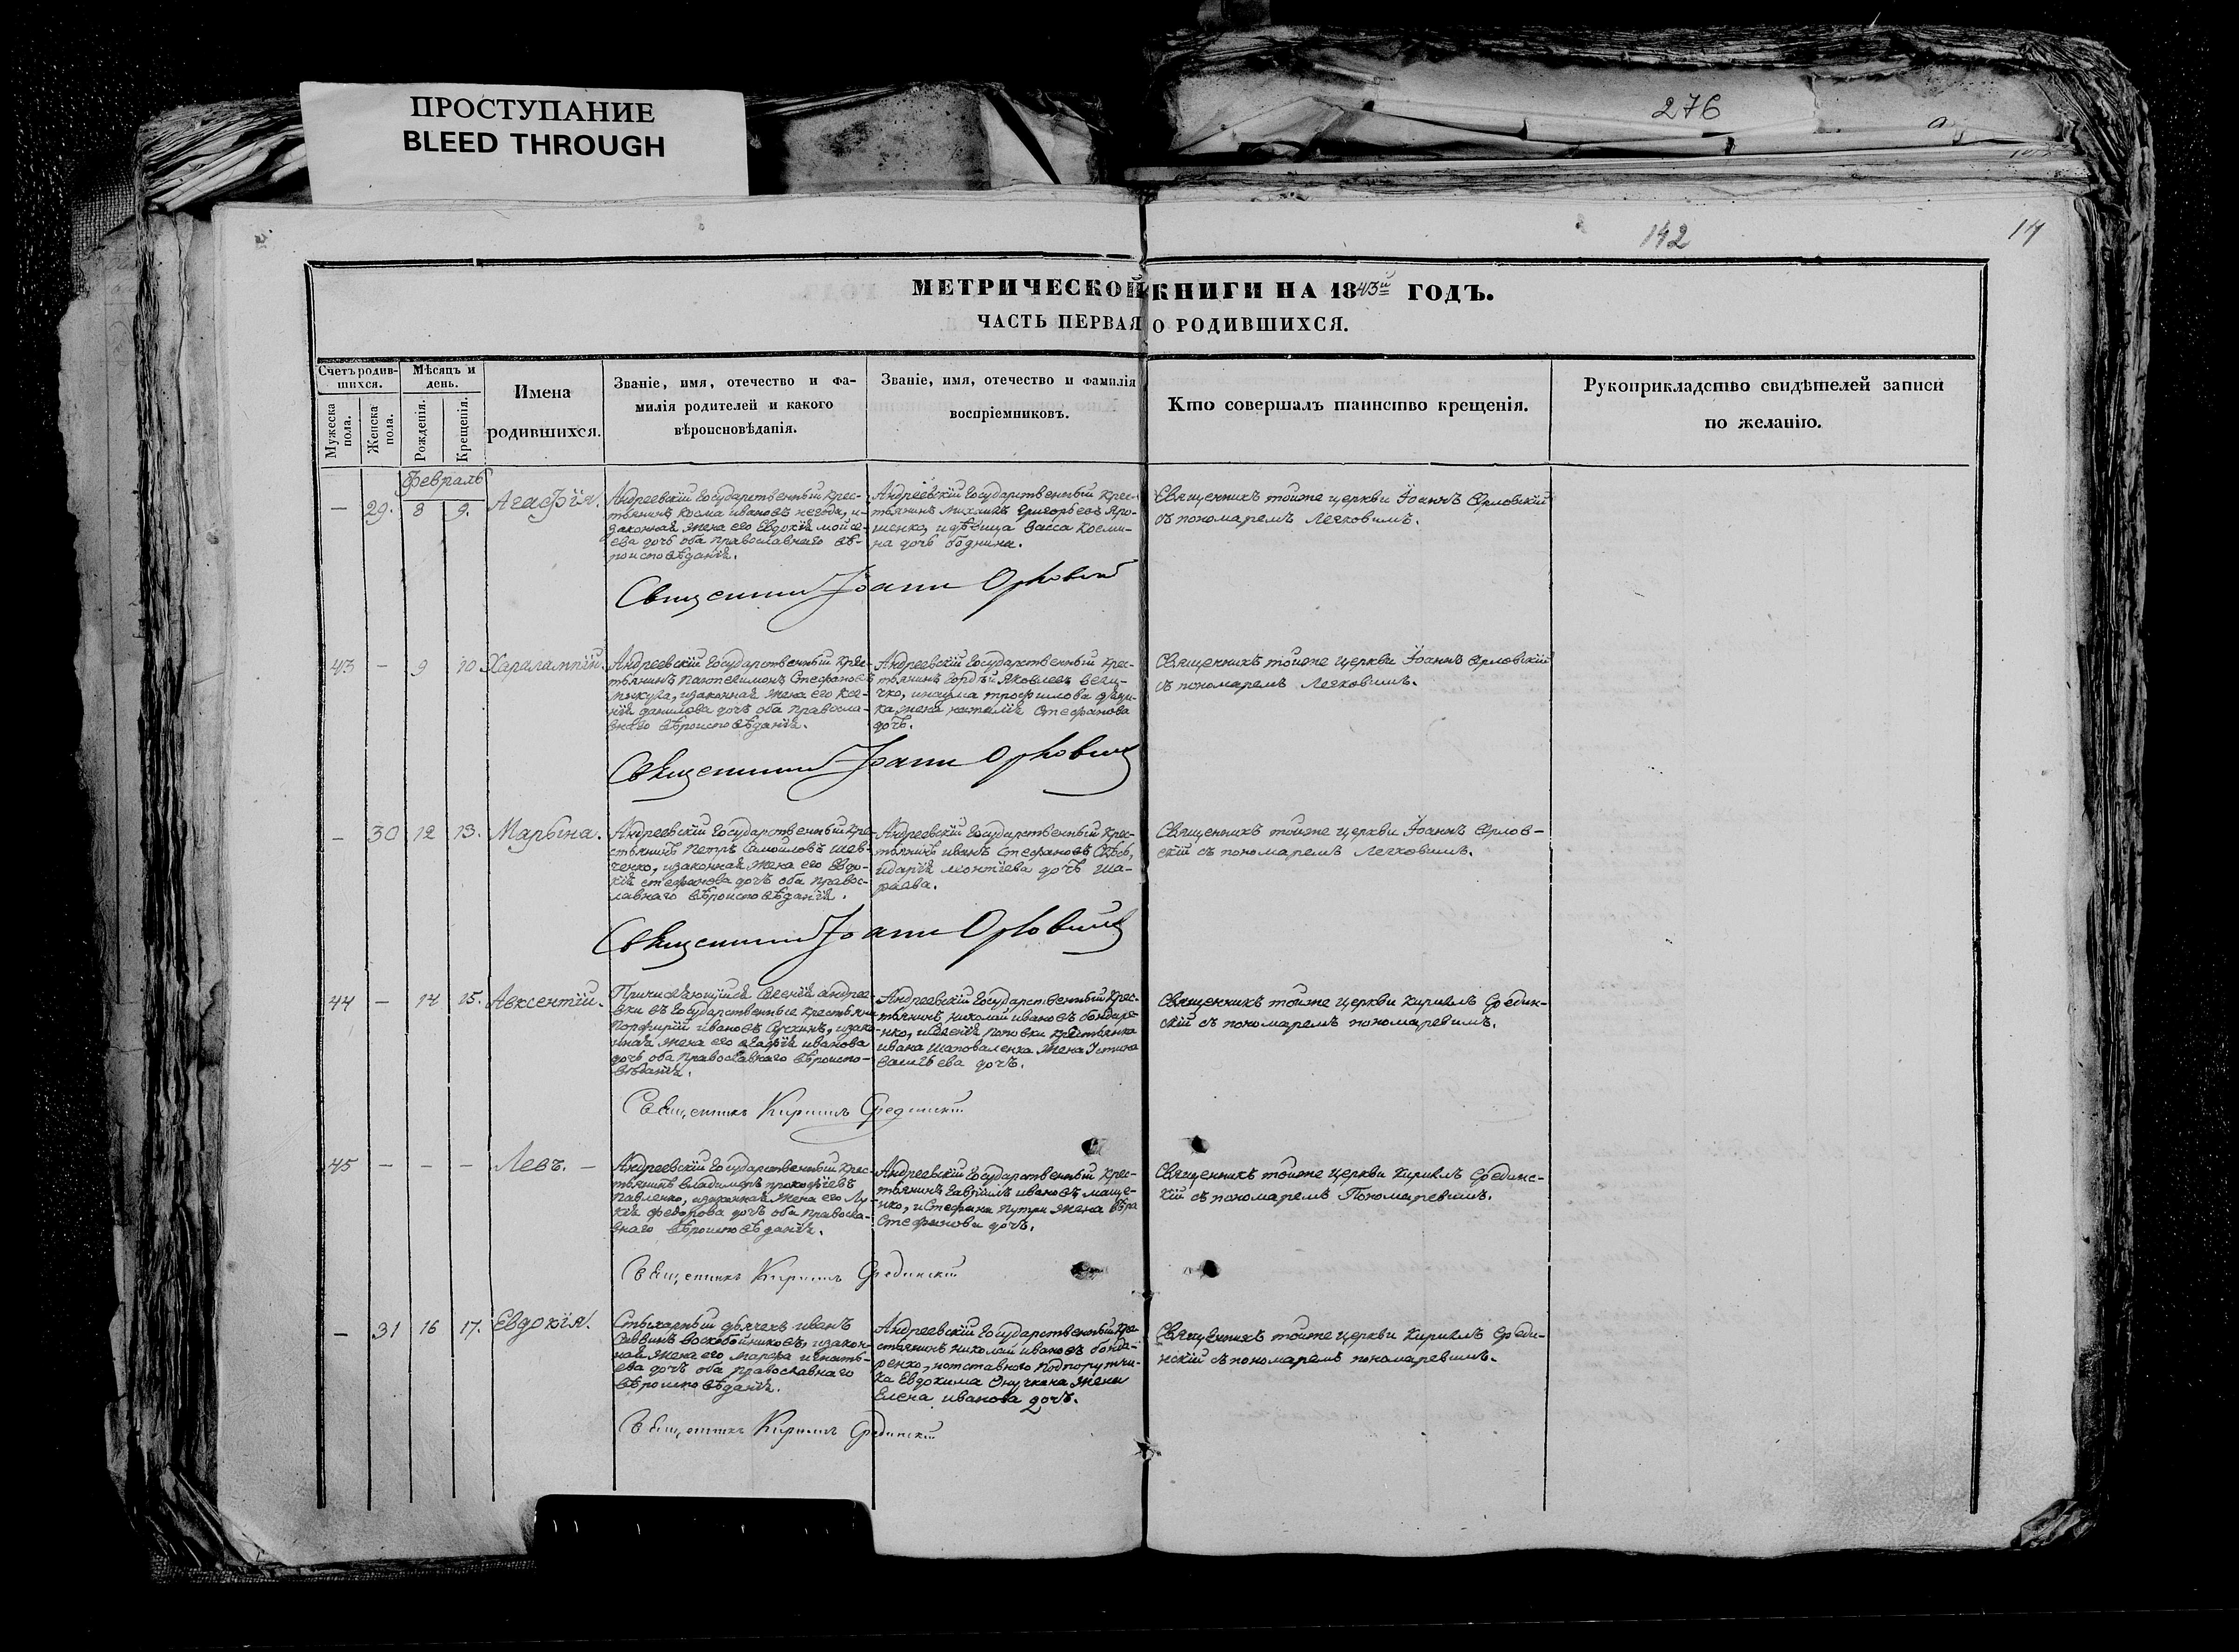 ПРОСТУПАНИЕ
BLEED THROUGH
276
142
14
МЕТРИЧЕСКОЙ КНИГИ НА 1843й ГОДЪ.
ЧАСТЬ ПЕРВАЯ О РОДИВШИХСЯ.
Счетъ родившихся.
Мужеска пола.
Женска пола.
Мѣсяцъ и день.
Рожденія.
Крещенія.
Имена родившихся.
Званіе, имя, отечество и фа-
милія родителей и какого
вѣроисповѣданія.
Званіе, имя, отечество и фамилія
воспріемниковъ.
Кто совершалъ таинство крещенія.
Рукоприкладство свидѣтелей записи
по желанію.
февраль
— 29. 8 9. Агафія.
Андреевскій государственный крес-
тьянинъ Косма ивановъ негода, и
законная жена его Евдокія мойсе-
ева дочь оба православнаго вѣ-
роисповѣданія.
Андреевскій государственный крес-
тьянинъ михаилъ григорьевъ яро-
шенко, и дѣвица васса косми-
на дочь
Священникъ тойже церкви Іоаннъ Орловскій
съ пономаремъ Легковимъ.
Священникъ Іоаннъ Орловскій
43 — 9 10 Харалампій.
Андреевскій государственный крес-
тьянинъ пантелимонъ Стефановъ
и законная жена его ксе-
нія данилова дочь оба правосла-
внаго вѣроисповѣданія.
Андреевскій государственный крес-
тьянинъ гордѣй яковлевъ вели-
чко, и наума трофимова
жена наталія Стефанова
дочь.
Священникъ тойже церкви Іоаннъ Орловскій
съ пономаремъ Легковимъ.
Священникъ Іоаннъ Орловскій
— 30 12 13. Марьина.
Андреевскій государственный кре-
стьянинъ петръ Самойловъ шев-
ченко, и законная жена его Евдо-
кія стефанова дочь оба правос-
лавнаго вѣроисповѣданія.
Андреевскій государственный крес-
тьянинъ иванъ Стефановъ
и дарія леонтіева дочь ша-
раева.
Священникъ тойже церкви Іоаннъ Орлов-
скій съ пономаремъ Легковимъ.
Священникъ Іоаннъ Орловскій
44 — 14 15. Авксентій.
Причисляющійся селенія андрее-
вки въ государственные крестьяне
порфирій ивановъ Сухинъ, и зако-
нная жена его агафія иванова
дочь оба православнаго вѣроиспо-
вѣданія.
Андреевскій государственный крес-
тьянинъ николай ивановъ бондаре-
нко, и селенія поповки крестьянина
ивана шаповаленка жена Устина
васильева дочь.
Священникъ тойже церкви кириллъ Средин-
скій съ пономаремъ пономаревимъ.
Священникъ Кириллъ Срединскій
45 — — — Левъ. —
Андреевскій государственный крес-
тьянинъ владимеръ прокофіевъ
павленко, и законная жена его Лу-
кія федорова дочь оба правосла-
внаго вѣроисповѣданія.
Андреевскій государственный крес-
тьянинъ гавріилъ ивановъ маще-
нко, и Стефана путри жена вѣра
Стефанова дочь.
Священникъ тойже церкви кириллъ Срединс-
кій съ пономаремъ Пономаревимъ.
Священникъ Кириллъ Срединскій
— 31 16 17. Евдокія.
Стихарный дьячекъ иванъ
Саввинъ воскобойниковъ, и закон-
ная жена его марфа игнать-
ева дочь оба православнаго
вѣроисповѣданія.
Андреевскій государственный кре-
стьянинъ николай ивановъ бонда-
ренко, и отставного подпорутчи-
ка Евдокима жена
Елена иванова дочь.
Священникъ тойже церкви кириллъ Среди-
нскій съ пономаремъ пономаревимъ.
Священникъ Кириллъ Срединскій